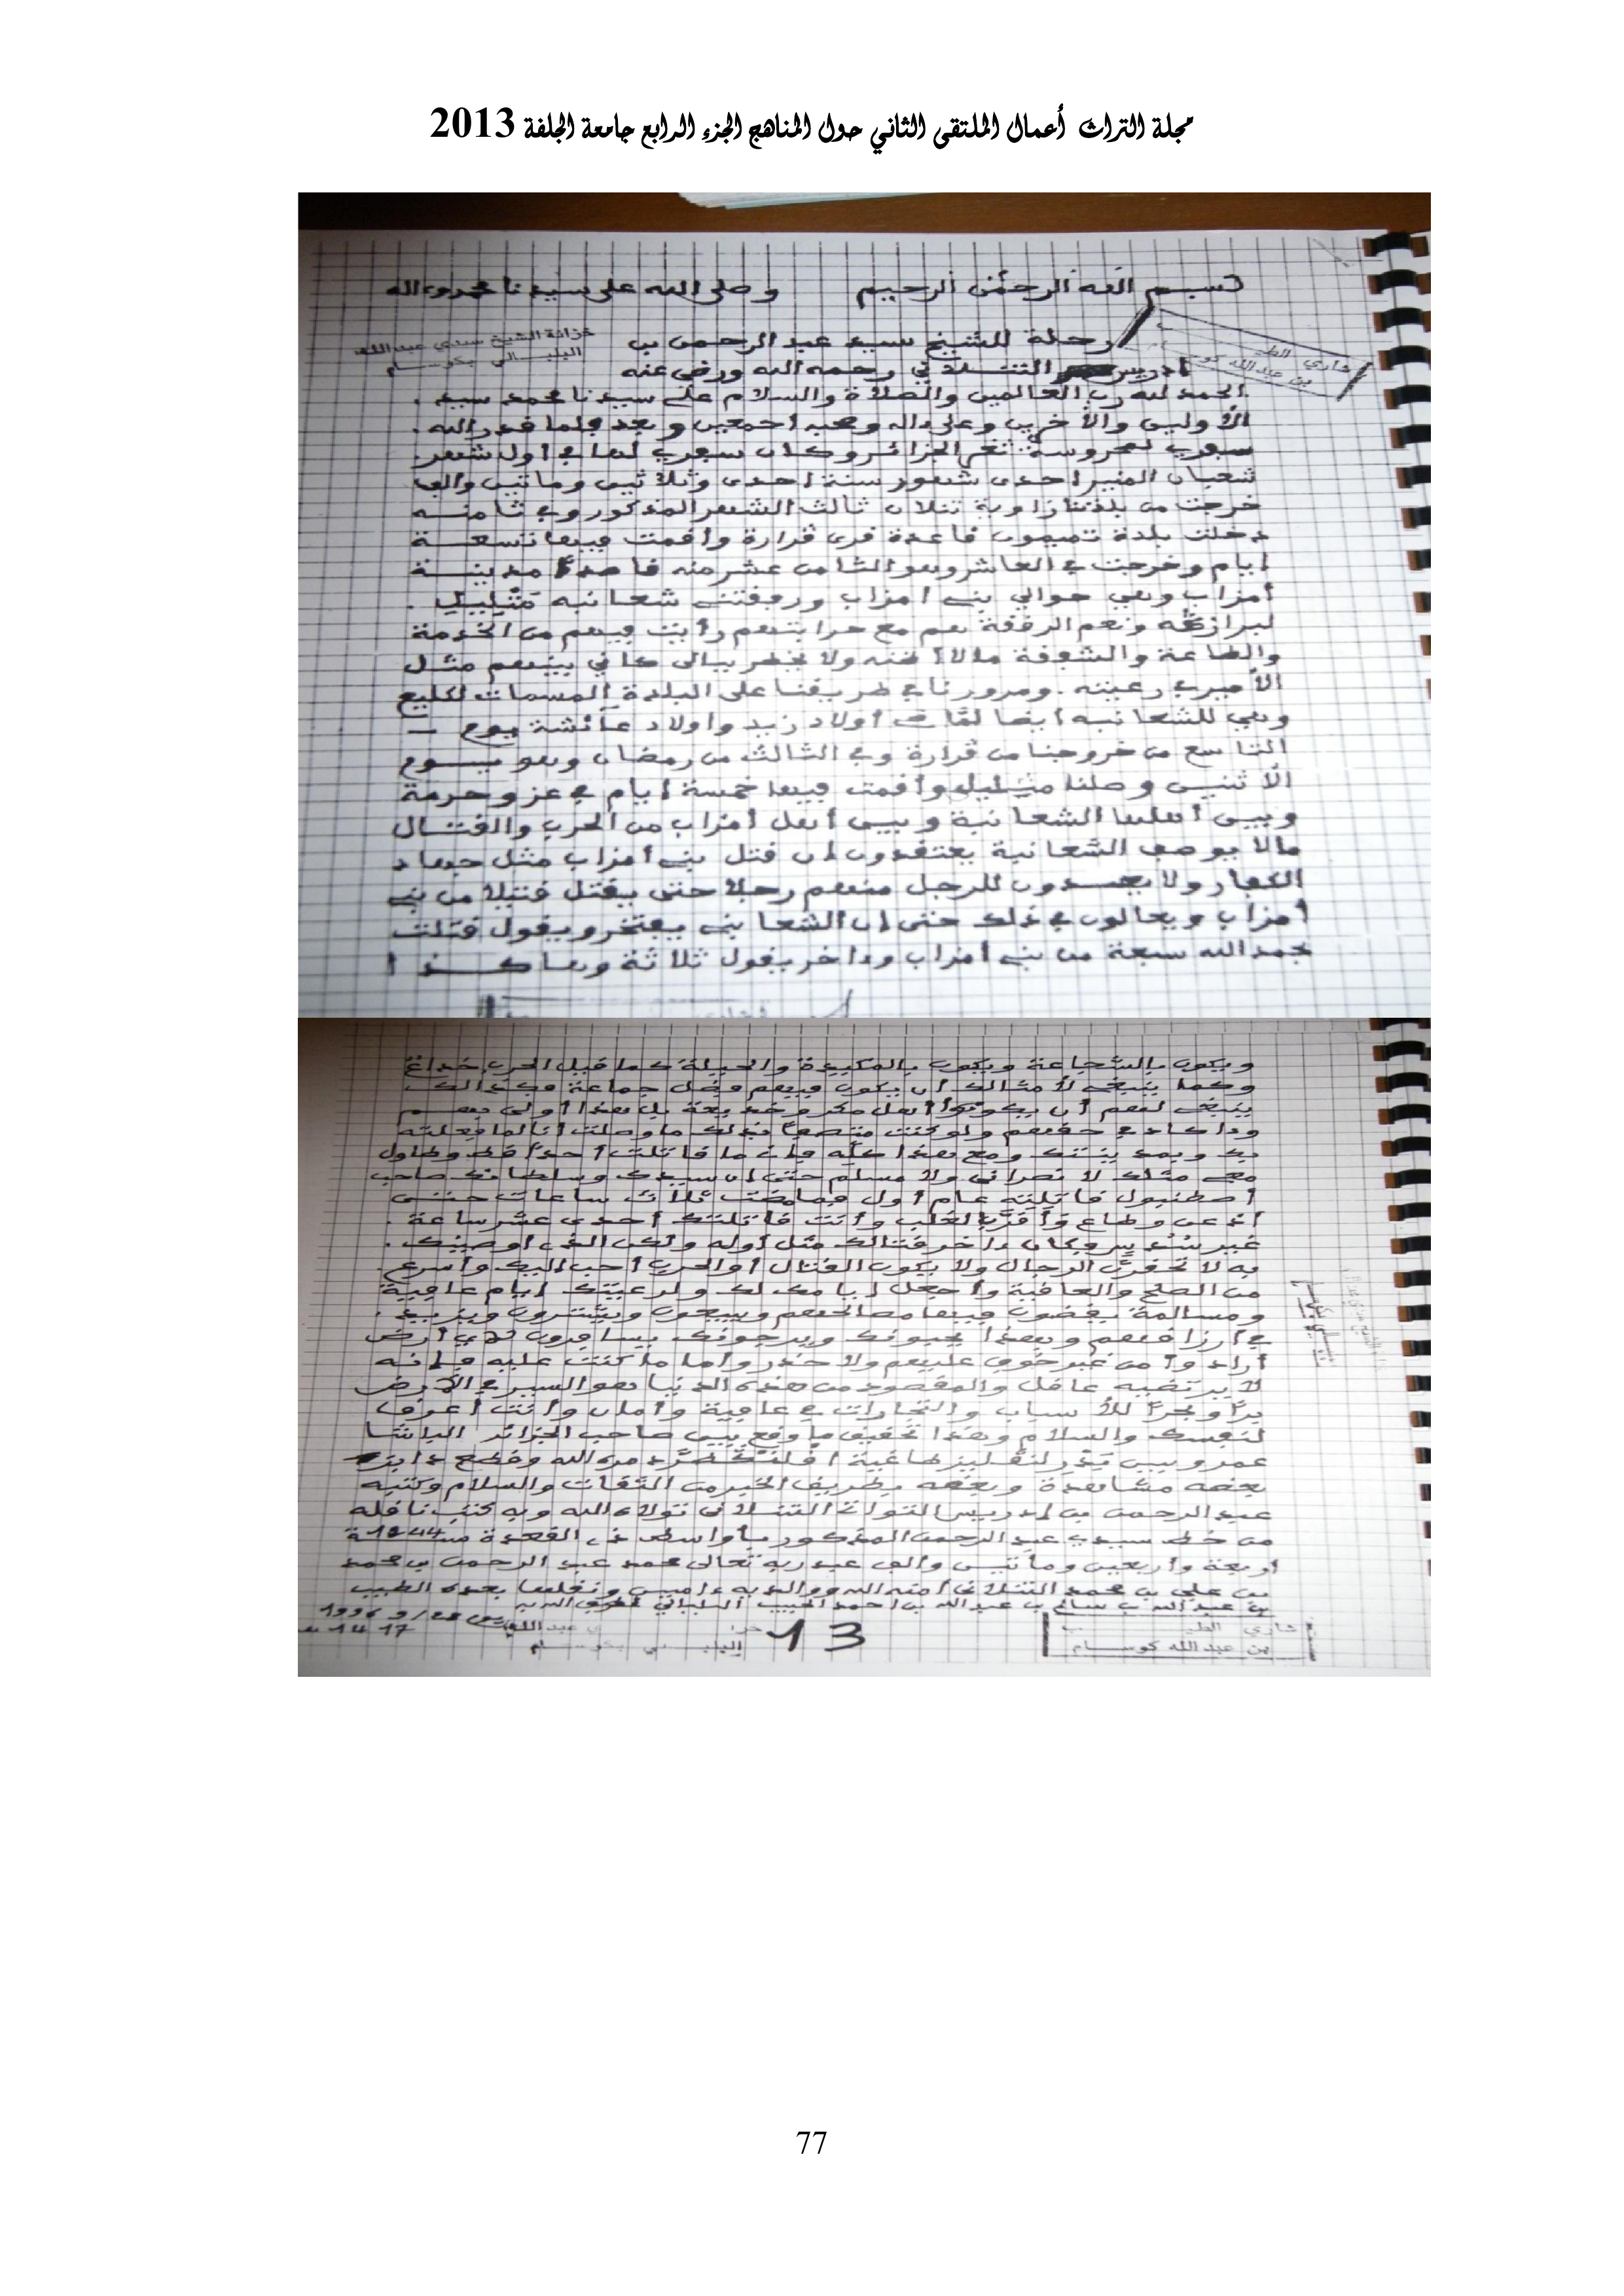 مجلة التراث أعمال الملتقى الثاني حول المناهج الجزء الرابع جامعة الجلفة 2013
بسم الله الرحمن الرحيم وصلى الله على سيدنا محمد وءاله
رحلة للشيخ سيد عبد الرحمن بن
خزانة الشيخ سيدي عبد الله
البلبالي بكوسام
شاري الطيب
بن عبد الله كوسام
ادريس التنلاني رحمه الله ورضي عنه
الحمد لله رب العالمين والصلاة والسلام على سيدنا محمد سيد .
الأولين والأخرين وعلى ءاله وصحبه اجمعين وبعد فلما قدر الله .
سفري لمحروسة ثغر الجزائر وكان سفري لها في اول شهر .
شعبان المنير احدى شهور سنة احدى وثلاثين وماتين والف
خرجت من بلدتنا زاوية تنلان ثالث الشهر المذكور وفي ثامنه
دخلت بلدة تميمون قاعدة قرى قرارة واقمت فيها تسعة
ايام وخرجت في العاشر وهو الثامن عشر منه قاصدا مدينة
أمزاب وهي حوالي بني امزاب ورفقتنا شعانبه متليلي .
لبرازقه ونعم الرفقة هم مع حرابتهم رأيت فيهم من الخدمة
والطاعة والشفقة مالا اظنه ولا يخطر ببالى كاني بينهم مثل
الأمير في رعيته . ومرورنا في طريقنا على البلدة المسمات لكليع
وهي للشعانبه ايضا أولاد زيد واولاد عائشة يوم
التاسع من خروجنا من قرارة وفي الثالث من رمضان وهو يوم
الاثنين وصلنا متليلي وأقمت فيها خمسة ايام في عز وحرمة
وبين أهلها الشعانبة وبين أهل أمزاب من الحرب والقتال
مالا يوصف الشعانبة يعتقدون ان قتل بني أمزاب مثل جهاد
الكفار ولا يعدون للرجل منهم رجلا حتى يقتل قتيلا من بني
أمزاب ويغالون في ذلك حتى ان الشعانبي يفتخر ويقول قتلت
بحمد الله سبعة من بني أمزاب وءاخر يقول ثلاثة وهاكذا
ويكون بالشجاعة ويكون بالمكيدة والحيلة كما قيل الحرب خداع
وكما ينبغي لأمثالك أن يكون فيهم جماعة فكذالك
ينبغي لهم أن يكونوا أهل مكر وخديعة بل هذا أولى بهم
وءاكد في حقهم ولو كنت متصفا بذلك ما وصلت أنا لما فعلته
بك وبمدينتك ومع هذا كله فإني ما قاتلت أحدا قط وطاول
معي مثلك لا نصراني ولا مسلم حتى ان سيدك وسلطانك صاحب
اصطنبول قاتلته عام أول فما مضت ثلاث ساعات حتى
أذعن وطاع وأنت قاتلتك احدى عشر ساعة .
غير شيء يسير وكان ءاخر قتالك مثل أوله ولكن الذي أوصيك .
به لا تحقرن الرجال ولا يكون القتال أو الحرب أحب اليك وأسرع
من الصلح والعافية واجعل ايامك لك ولرعيتك ايام عافية
ومسالمة يقضون فيها مصالحهم ويبيعون ويشترون ويزيد .
في أرزاقهم وبهذا يحبونك ويرجونك يسافرون في أي أرض
أرادوا من غير خوف عليهم ولا حذر وأما ما كنت عليه فإنه
لا يرتضيه عاقل والمقصود من هذه الدنيا هو السير في الأرض
برا وبحرا للأسباب والتجارات في عافية وأمان وأنت أعرف
لنفسك والسلام وهذا تحقيق ما وقع بين صاحب الجزائر الباشا
عمر وبين لنقليز طاغية دمره الله وقطع دابره
بعضه مشاهدة وبعضه بطريق الخبر من الثقات والسلام وكتبه
عبد الرحمن بن ادريس التواتي التنلاني تولاه الله وبه كتب ناقله
من خط سيدي عبد الرحمن المذكور بأواسط ذي القعدة سنة 1244
أربعة وأربعين ومأتين والف عبد ربه تعالى محمد عبد الرحمن بن محمد
بن علي بن محمد التنلاني أمنه الله ووالديه ءامين ونقلها بعده الطيب
بن عبد الله بن سالم بن عبد الله بن احمد الحبيب البلبالي
1417
13
شاري الطيب
بن عبد الله كوسام
77